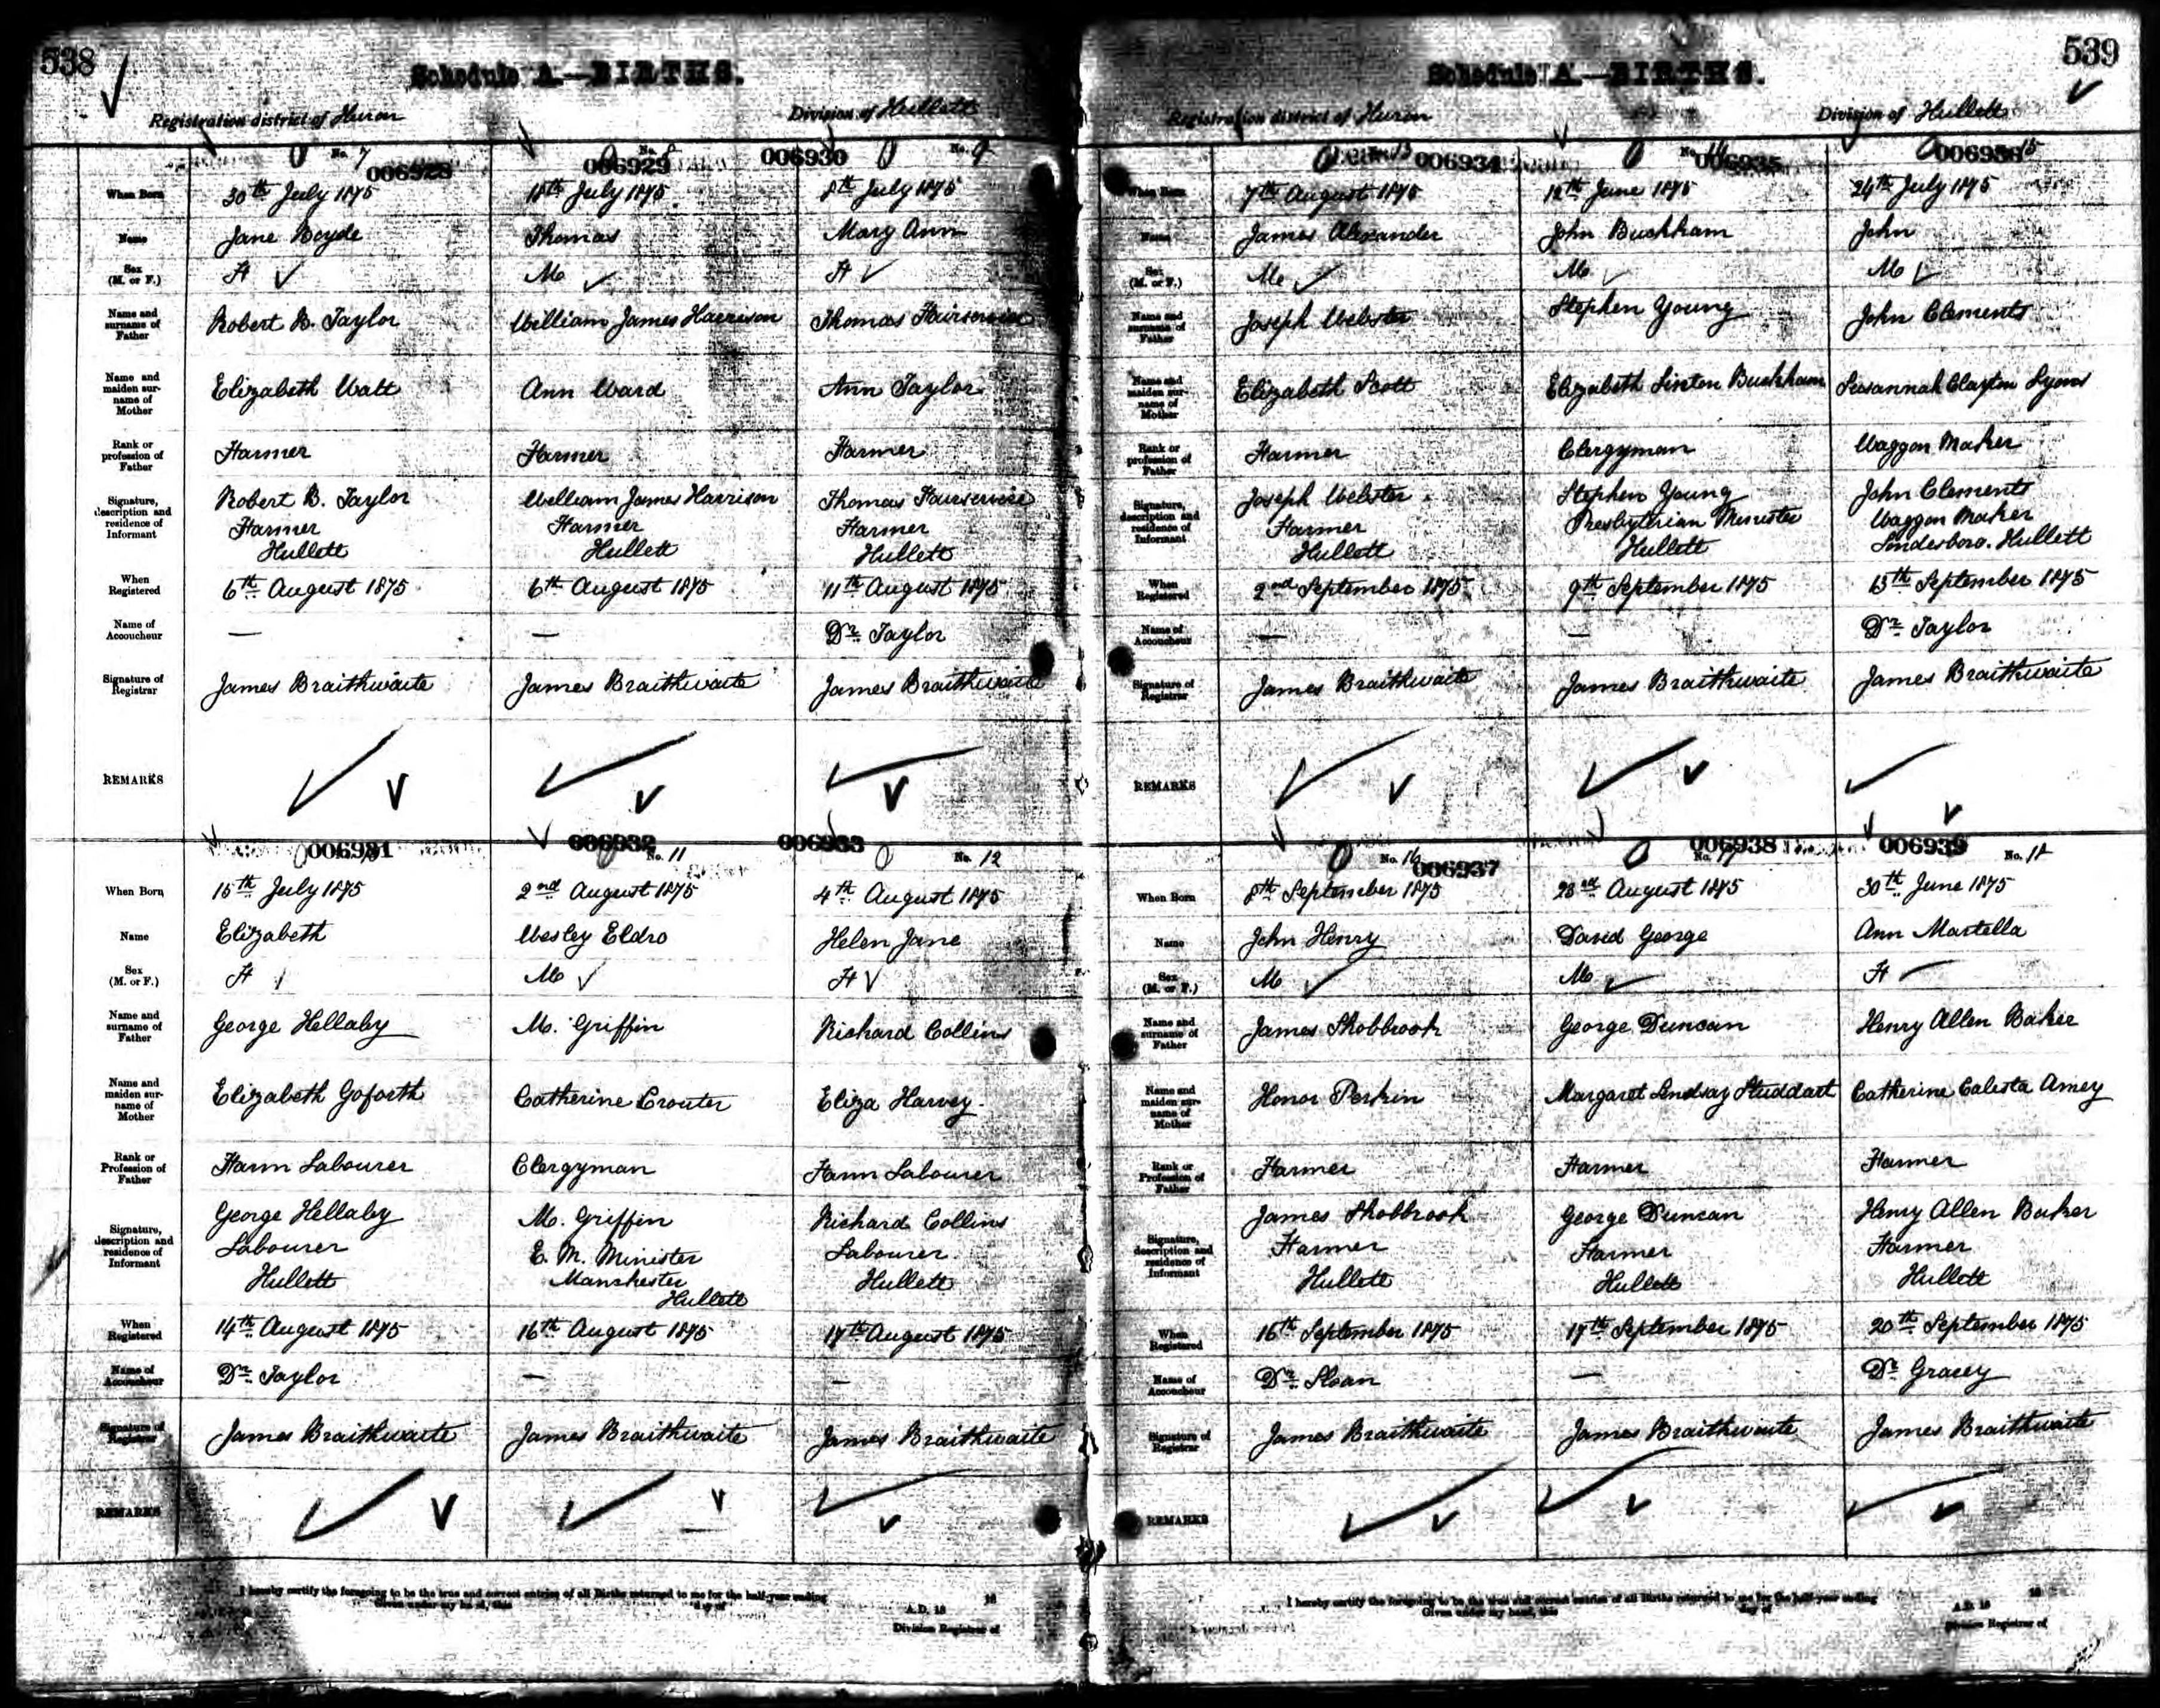 538
Schedule A.—BIRTHS.
Registration district of Huron Division of Hullett
No. 7 006928 006929 No. 8 006930 No. 9
When Born 30th July 1875 18th July 1875 8th July 1875
Name Jane Boyde Thomas Mary Ann
Sex (M. or F.) F M F
Name and surname of Father Robert B. Taylor William James Harrison Thomas Fairservice
Name and maiden surname of Mother Elizabeth Watt Ann Ward Ann Taylor
Rank or profession of Father Farmer Farmer Farmer
Signature, description and residence of Informant Robert B. Taylor William James Harrison Thomas Fairservice
Farmer Farmer Farmer
Hullett Hullett Hullett
When Registered 6th August 1875 6th August 1875 11th August 1875
Name of Accoucheur — — Dr. Taylor
Signature of Registrar James Braithwaite James Braithwaite James Braithwaite
REMARKS
006931 006932 No. 11 006933 No. 12
When Born 15th July 1875 2nd August 1875 4th August 1875
Name Elizabeth Wesley Eldro Helen Jane
Sex (M. or F.) F M F
Name and surname of Father George Hellaby M. Griffin Richard Collins
Name and maiden surname of Mother Elizabeth Goforth Catherine Crouter Eliza Harvey
Rank or Profession of Father Farm Labourer Clergyman Farm Labourer
Signature, description and residence of Informant George Hellaby M. Griffin Richard Collins
Labourer E. M. Minister Labourer
Hullett Manchester Hullett
Hullett
When Registered 14th August 1875 16th August 1875 17th August 1875
Name of Accoucheur Dr. Taylor — —
Signature of Registrar James Braithwaite James Braithwaite James Braithwaite
REMARKS
I hereby certify the foregoing to be the true and correct entries of all Births returned to me for the half-year ending 18
Given under my hand, this day of A.D. 18
Division Registrar of
539
Schedule A.—BIRTHS.
Registration district of Huron Division of Hullett
13 006934 No. 14 006935 006936 15
When Born 7th August 1875 12th June 1875 24th July 1875
Name James Alexander John Buckham John
Sex (M. or F.) M M M
Name and surname of Father Joseph Webster Stephen Young John Clements
Name and maiden surname of Mother Elizabeth Scott Elizabeth Linton Buckham Susannah Clayton Lyons
Rank or profession of Father Farmer Clergyman Waggon Maker
Signature, description and residence of Informant Joseph Webster Stephen Young John Clements
Farmer Presbyterian Minister Waggon Maker
Hullett Hullett Londesboro. Hullett
When Registered 2nd September 1875 9th September 1875 13th September 1875
Name of Accoucheur — — Dr. Taylor
Signature of Registrar James Braithwaite James Braithwaite James Braithwaite
REMARKS
No. 16 006937 006938 17 006939 No. 18
When Born 8th September 1875 23rd August 1875 30th June 1875
Name John Henry David George Ann Martella
Sex (M. or F.) M M F
Name and surname of Father James Shobbrook George Duncan Henry Allen Baker
Name and maiden surname of Mother Honor Perkin Margaret Lindsay Studdart Catherine Calesta Amey
Rank or Profession of Father Farmer Farmer Farmer
Signature, description and residence of Informant James Shobbrook George Duncan Henry Allen Baker
Farmer Farmer Farmer
Hullett Hullett Hullett
When Registered 16th September 1875 17th September 1875 20th September 1875
Name of Accoucheur Dr. Sloan — Dr. Gracey
Signature of Registrar James Braithwaite James Braithwaite James Braithwaite
REMARKS
I hereby certify the foregoing to be the true and correct entries of all Births returned to me for the half-year ending 18
Given under my hand, this day of A.D. 18
Division Registrar of